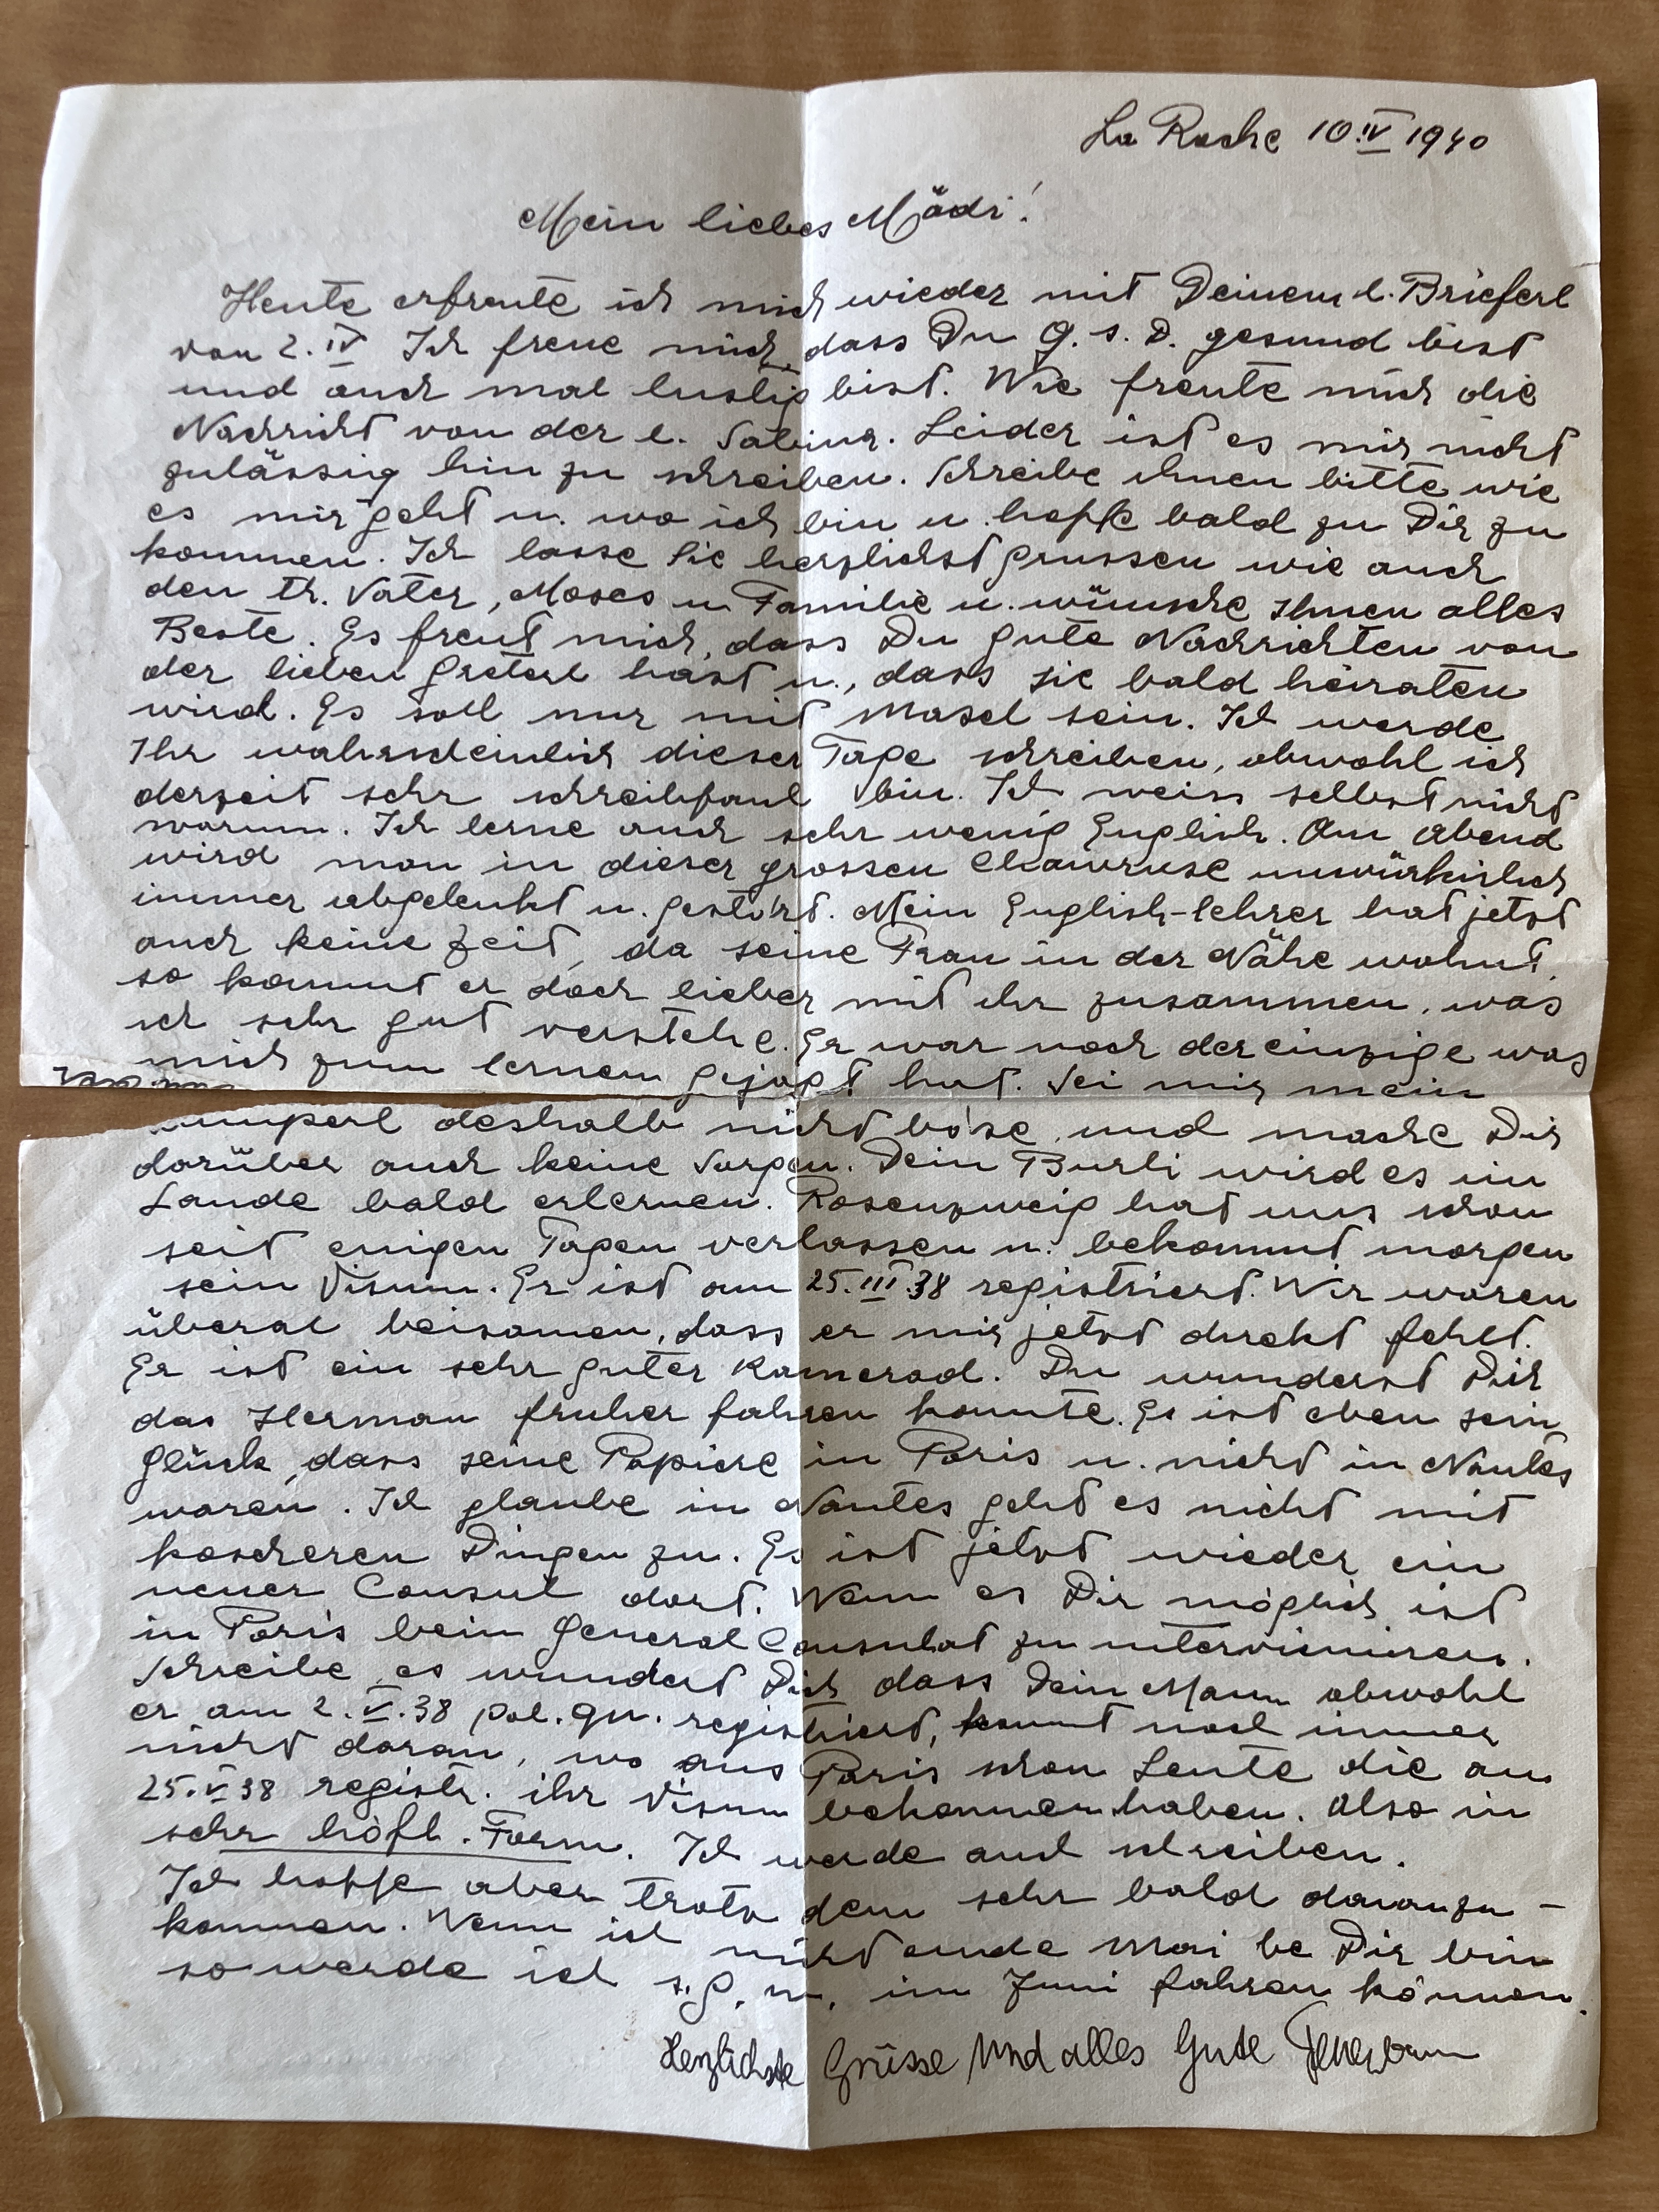 La Roche 10.IV 1940
Mein liebes Mädi!
Heute erfreute ich mich wieder mit Deinem l. Brieferl
von 2.IV Ich freue mich, dass Du G.s.D. gesund bist
und auch mal lustig bist. Wie freute mich die
Nachricht von der l. Sabina. Leider ist es mir nicht
zulässig hin zu schreiben. Schreibe ihnen bitte wie
es mir geht u. wo ich bin u. hoffe bald zu Dir zu
kommen. Ich lasse Sie herzlichst grussen wie auch
den th. Vater, Moses u Familie u. wünsche Ihnen alles
Beste. Es freut mich, dass Du gute Nachrichten von
der lieben Greterl hast u., dass sie bald heiraten
wird. Es soll nur mit Masel sein. Ich werde
Ihr wahrscheinlich dieser Tage schreiben, obwohl ich
derzeit sehr schreibfaul bin. Ich weiss selbst nicht
warum. Ich lerne auch sehr wenig English. Am Abend
wird man in dieser grossen Chawruse unwürkirlich
immer abgelenkt u. gestört. Mein English-lehrer hat jetzt
auch keine Zeit, da seine Frau in der Nähe wohnt,
so kommt er doch lieber mit ihr zusammen, was
ich sehr gut verstehe. Er war noch der einzige was
mich zum lernen gejagt hat. Sei mir mein
deshalb nicht böse, und mache Dir
darüber auch keine Sorgen. Dein Burli wird es im
Lande bald erlernen. Rosenzweig hat uns schon
seit einigen Tagen verlassen u. bekommt morgen
sein Visum. Er ist am 25.III.38 registriert. Wir waren
überal beisamen, dass er mir jetzt direkt fehlt.
Er ist ein sehr guter Kamerad. Du wunderst Dich
das Herman fruher fahren konnte. Es ist eben sein
Glück, dass seine Papiere in Paris u. nicht in Nantes
waren. Ich glaube in Nantes geht es nicht mit
koscheren Dingen zu. Es ist jetzt wieder ein
neuer Consul dort. Wenn es Dir möglich ist
in Paris beim General Consulat zu interviniren.
Schreibe, es wundert Dich dass Dein Mann obwohl
er am 2.V.38 pol. qu. registriert, kommt noch immer
nicht daran, wo aus Paris schon Leute die am
25.V 38 registr. ihr Visum bekommen haben. Also in
sehr höfl. Form. Ich werde auch schreiben.
Ich hoffe aber trotz dem sehr bald daranzu-
kommen. Wenn ich nicht ende Mai be Dir bin
so werde ich s.G.w. im Juni fahren können.
Herzlichste Grüsse und alles Gute